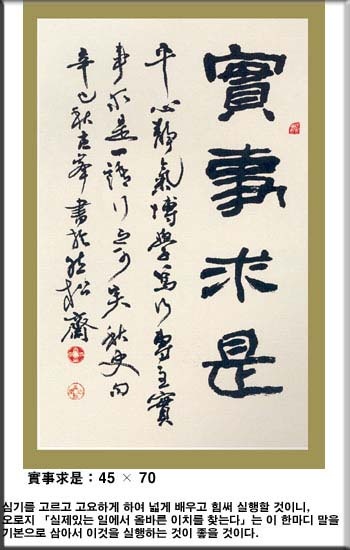 實事求是
平心靜氣博學篤行專主實
事求是一語行之可矣 秋史句
辛巳秋 峯書於 松齋
實事求是 : 45 × 70
심기를 고르고 고요하게 하여 넓게 배우고 힘써 실행할 것이니,
오로지 「실제있는 일에서 올바른 이치를 찾는다」는 이 한마디 말을
기본으로 삼아서 이것을 실행하는 것이 좋을 것이다.